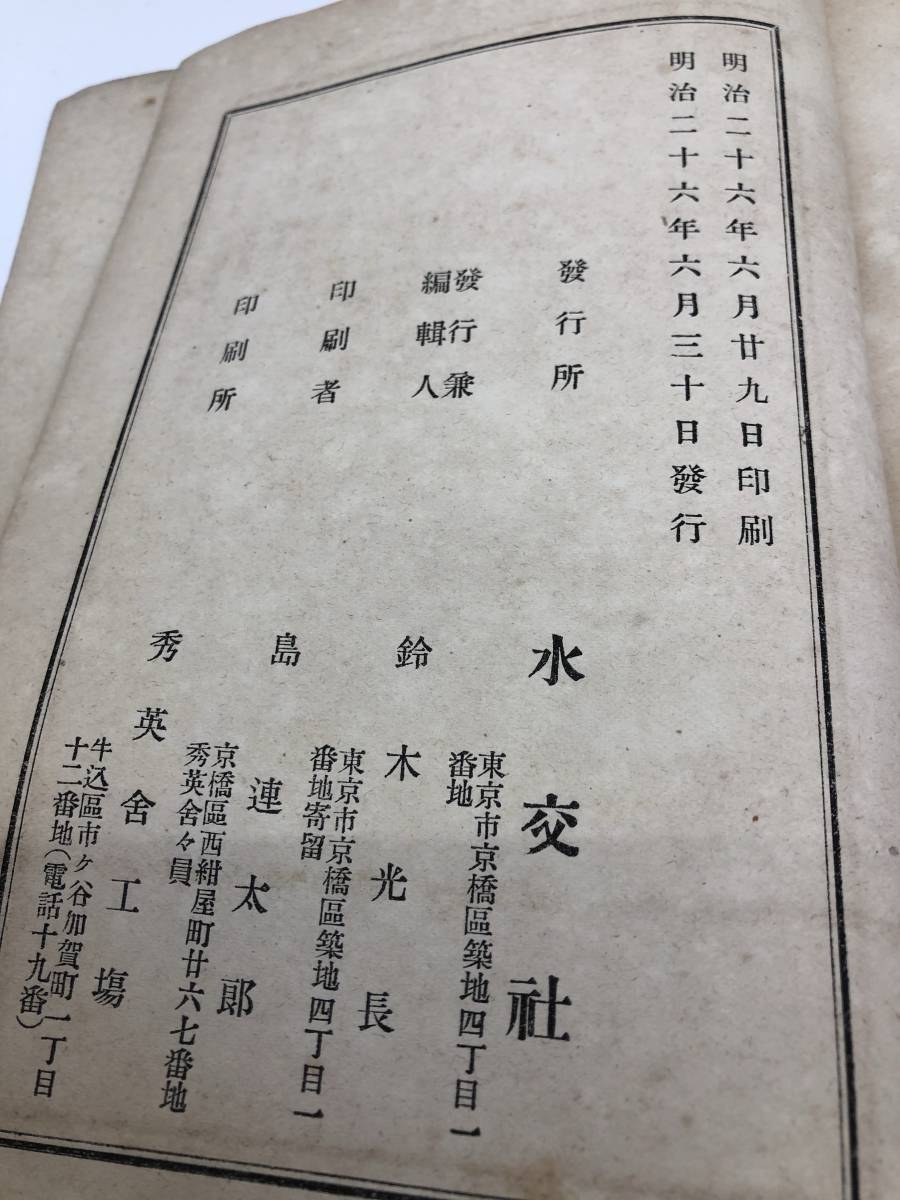 明治二十六年六月廿九日印刷
明治二十六年六月三十日發行
發行所
水交社
東京市京橋區築地四丁目一
番地
發行兼
編輯人
鈴木光長
東京市京橋區築地四丁目一
番地寄留
印刷者
島連太郎
京橋區西紺屋町廿六七番地
秀英舍々員
印刷所
秀英舍工塲
牛込區市ケ谷加賀町一丁目
十二番地(電話十九番)